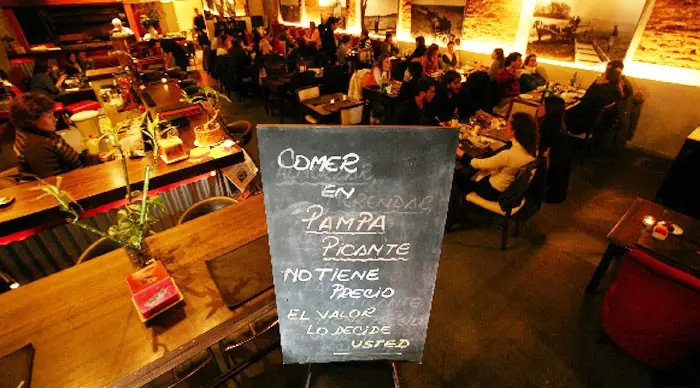 COMER
EN
PAMPA
PICANTE
NO TIENE
PRECIO
EL VALOR
LO DECIDE
USTED